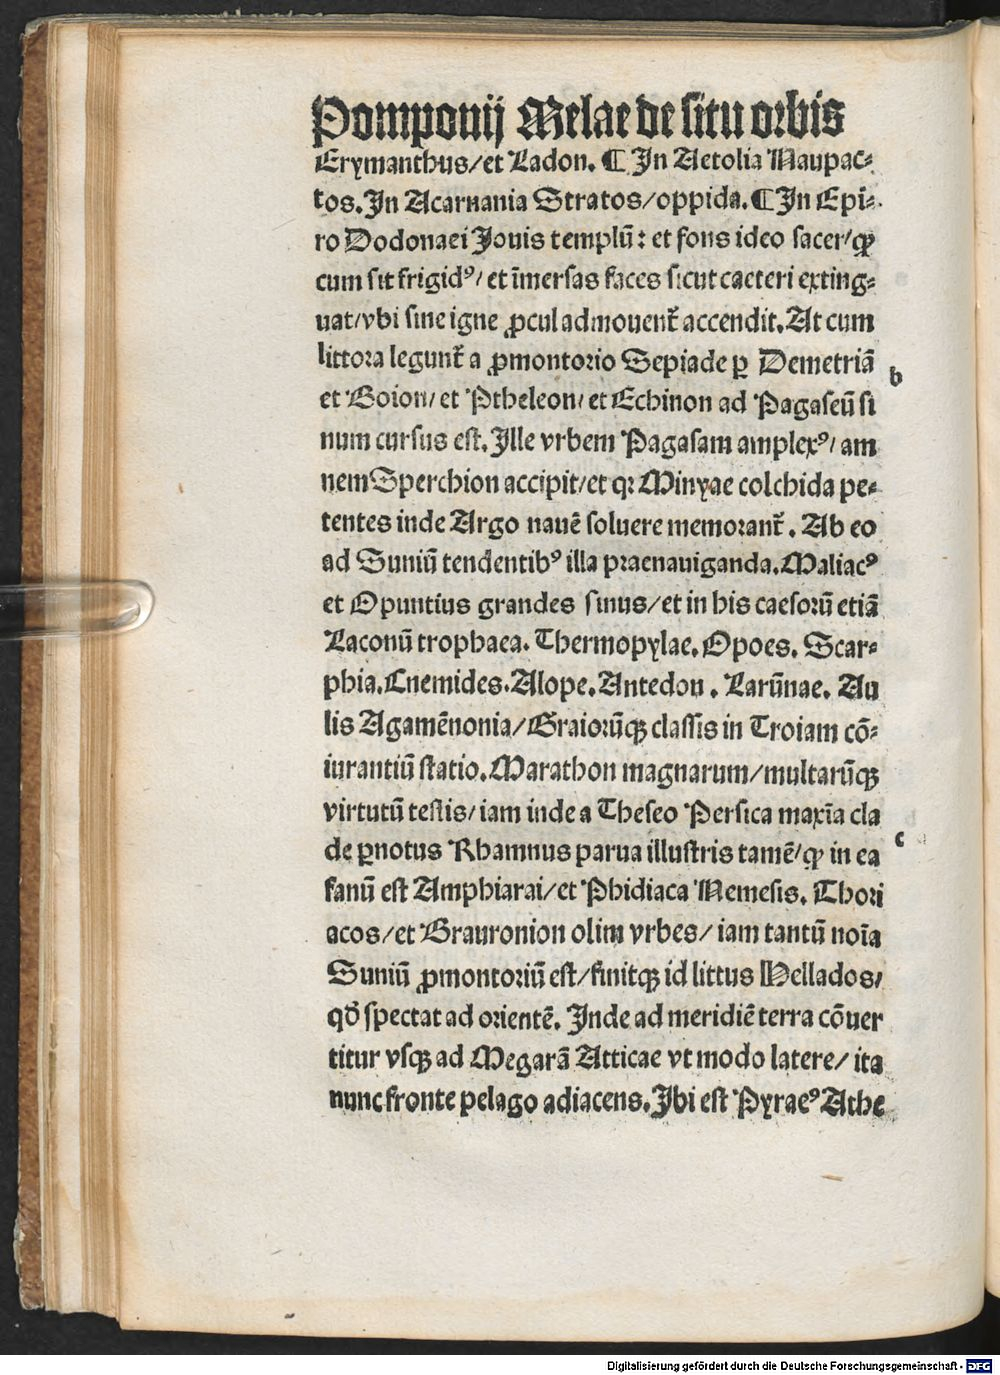 Pomponij Melae de situ orbis
Erymanthus/et Ladon. ¶ In Aetolia Naupac⸗
tos. In Acarnania Stratos/oppida. ¶ In Epi⸗
ro Dodonaei Jouis templū: et fons ideo sacer/ꝙ
cum sit frigidꝰ/ et īmersas faces sicut caeteri exting⸗
uat/vbi sine igne ꝓcul admouent̄ accendit. At cum
littora legunt̄ a ꝓmontorio Sepiade ꝑ Demetriā
b
et Boion/et Ptheleon/et Echinon ad Pagaseū si
num cursus est. Ille vrbem Pagasam amplexꝰ/ am
nem Sperchion accipit/et qꝛ Minyae colchida pe⸗
tentes inde Argo nauē soluere memorant̄. Ab eo
ad Suniū tendentibꝰ illa praenauiganda. Maliacꝰ
et Opuntius grandes sinus/et in his caesorū etiā
Laconū trophaea. Thermopylae. Opoes. Scar⸗
phia. Cnemides. Alope. Antedon. Larūnae. Au
lis Agamēnonia/Graiorūqꝫ classis in Troiam cō⸗
iurantiū statio. Marathon magnarum/multarūqꝫ
virtutū testis/iam inde a Theseo Persica maxīa cla
de ꝑnotus Rhamnus parua illustris tamē/ꝙ in ea
c
fanū est Amphiarai/et Phidiaca Nemesis. Thori
acos/et Brauronion olim vrbes/ iam tantū noīa
Suniū ꝓmontoriū est/finitqꝫ id littus Hellados/
qđ spectat ad orientē. Inde ad meridiē terra cōuer
titur vsqꝫ ad Megarā Atticae vt modo latere/ ita
nunc fronte pelago adiacens. Ibi est Pyraeꝰ Athe
Digitalisierung gefördert durch die Deutsche Forschungsgemeinschaft - DFG